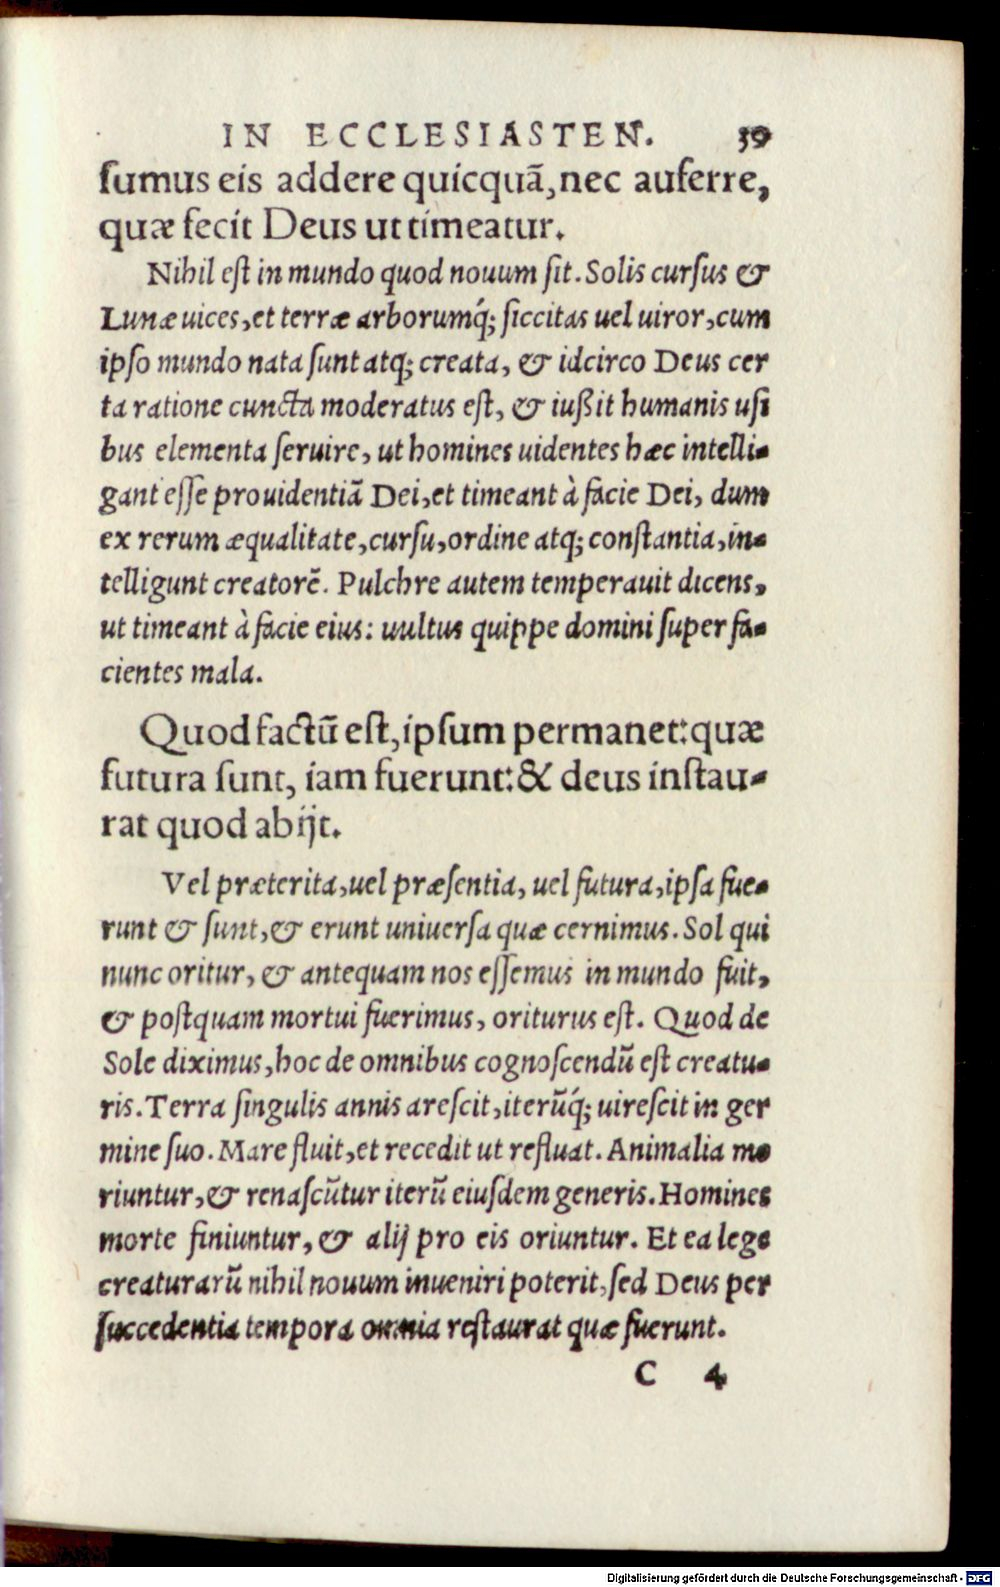 IN ECCLESIASTEN. 39
sumus eis addere quicquã, nec auferre,
quæ fecit Deus ut timeatur.
Nihil est in mundo quod nouum sit. Solis cursus &
Lunæ uices, et terræ arborumq́; siccitas uel uiror, cum
ipso mundo nata sunt atq; creata, & idcirco Deus cer
ta ratione cuncta moderatus est, & iußit humanis usi
bus elementa seruire, ut homines uidentes hæc intelli-
gant esse prouidentiã Dei, et timeant à facie Dei, dum
ex rerum æqualitate, cursu, ordine atq; constantia, in-
telligunt creatorẽ. Pulchre autem temperauit dicens,
ut timeant à facie eius: uultus quippe domini super fa-
cientes mala.
Quod factũ est, ipsum permanet: quæ
futura sunt, iam fuerunt: & deus instau-
rat quod abijt.
Vel præterita, uel præsentia, uel futura, ipsa fue-
runt & sunt, & erunt uniuersa quæ cernimus. Sol qui
nunc oritur, & antequam nos essemus in mundo fuit,
& postquam mortui fuerimus, oriturus est. Quod de
Sole diximus, hoc de omnibus cognoscendũ est creatu-
ris. Terra singulis annis arescit, iterũq́; uirescit in ger
mine suo. Mare fluit, et recedit ut refluat. Animalia mo
riuntur, & renascũtur iterũ eiusdem generis. Homines
morte finiuntur, & alij pro eis oriuntur. Et ea lege
creaturarũ nihil nouum inueniri poterit, sed Deus per
succedentia tempora omnia restaurat quæ fuerunt.
C 4
Digitalisierung gefördert durch die Deutsche Forschungsgemeinschaft - DFG